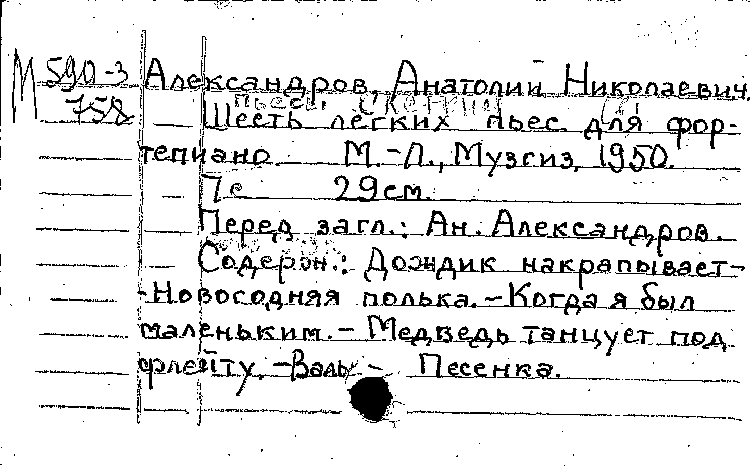 М 590-3 Александров, Анатолий Николаевич.
758 Шесть легких пьес для фор-
тепиано М.-Л., Музгиз, 1950.
7с 29см.
Перед загл.: Ан. Александров.
Содерж.: Дождик накрапывает-
-Новогодняя полька.-Когда я был
маленьким.- Медведь танцует под
флейту.-Вальс- Песенка.